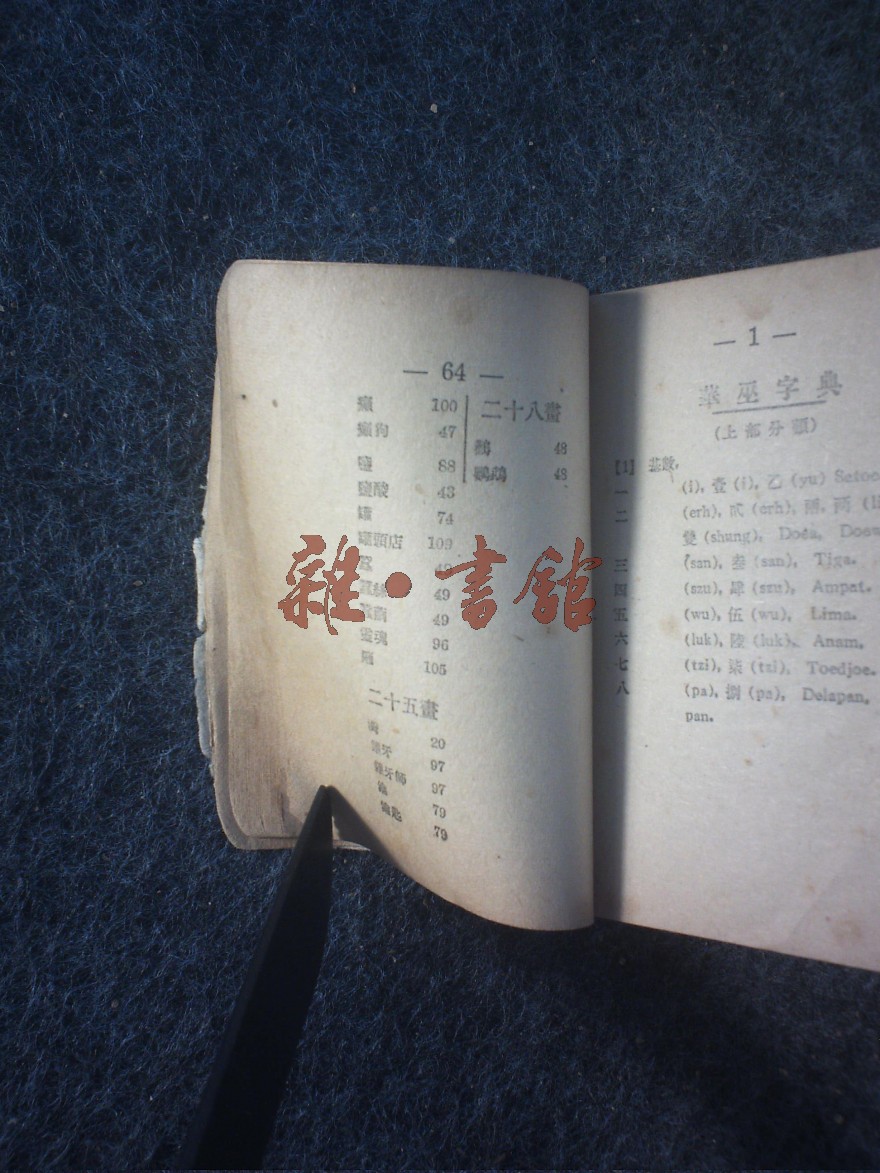 — 64 —
癩 100
癲狗 47
鹽 88
鹽酸 43
罐 74
罐頭店 109
49
49
靈魂 96
105
二十五畫
20
鑲牙 97
鑲牙師 97
鑰 79
鑰匙 79
二十八畫
鸚 48
鸚鵡 48
— 1 —
華巫字典
(上部分類)
【1】 基數.
一 (i), 壹 (i), 乙 (yu) Satoe
二 (erh), 貳 (erh), 兩, 両
雙 (shung), Doea, Doew
三 (san), 叁 (san), Tiga.
四 (szu), 肆 (szu), Ampat.
五 (wu), 伍 (wu), Lima.
六 (luk), 陸 (luk), Anam.
七 (tzi), 柒 (tzi), Toedjoe.
八 (pa), 捌 (pa), Delapan,
pan.
雜·書館